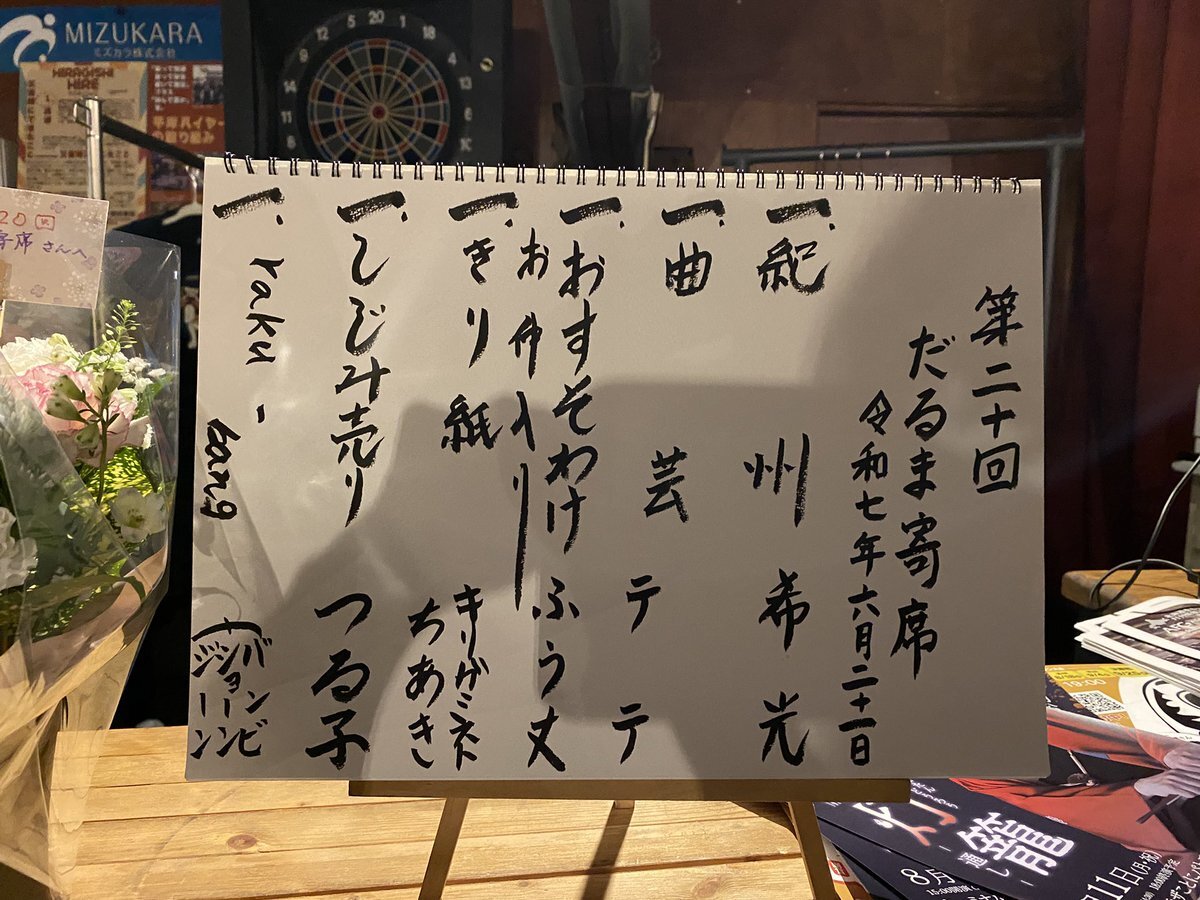 第二十回
だるま寄席
令和七年六月二十一日
一.紀州 希光
一.曲芸 テテ
一.おすそわけ ふう丈
お仲入り
一.きり紙 キリガミネ
ちあき
一.しじみ売り つる子
一.raku-tang
(バンビ
ジョーン
MIZUKARA
ミズカラ株式会社
20
寄席さんへ
灯籠
-通し-
8月
11日(月・祝)